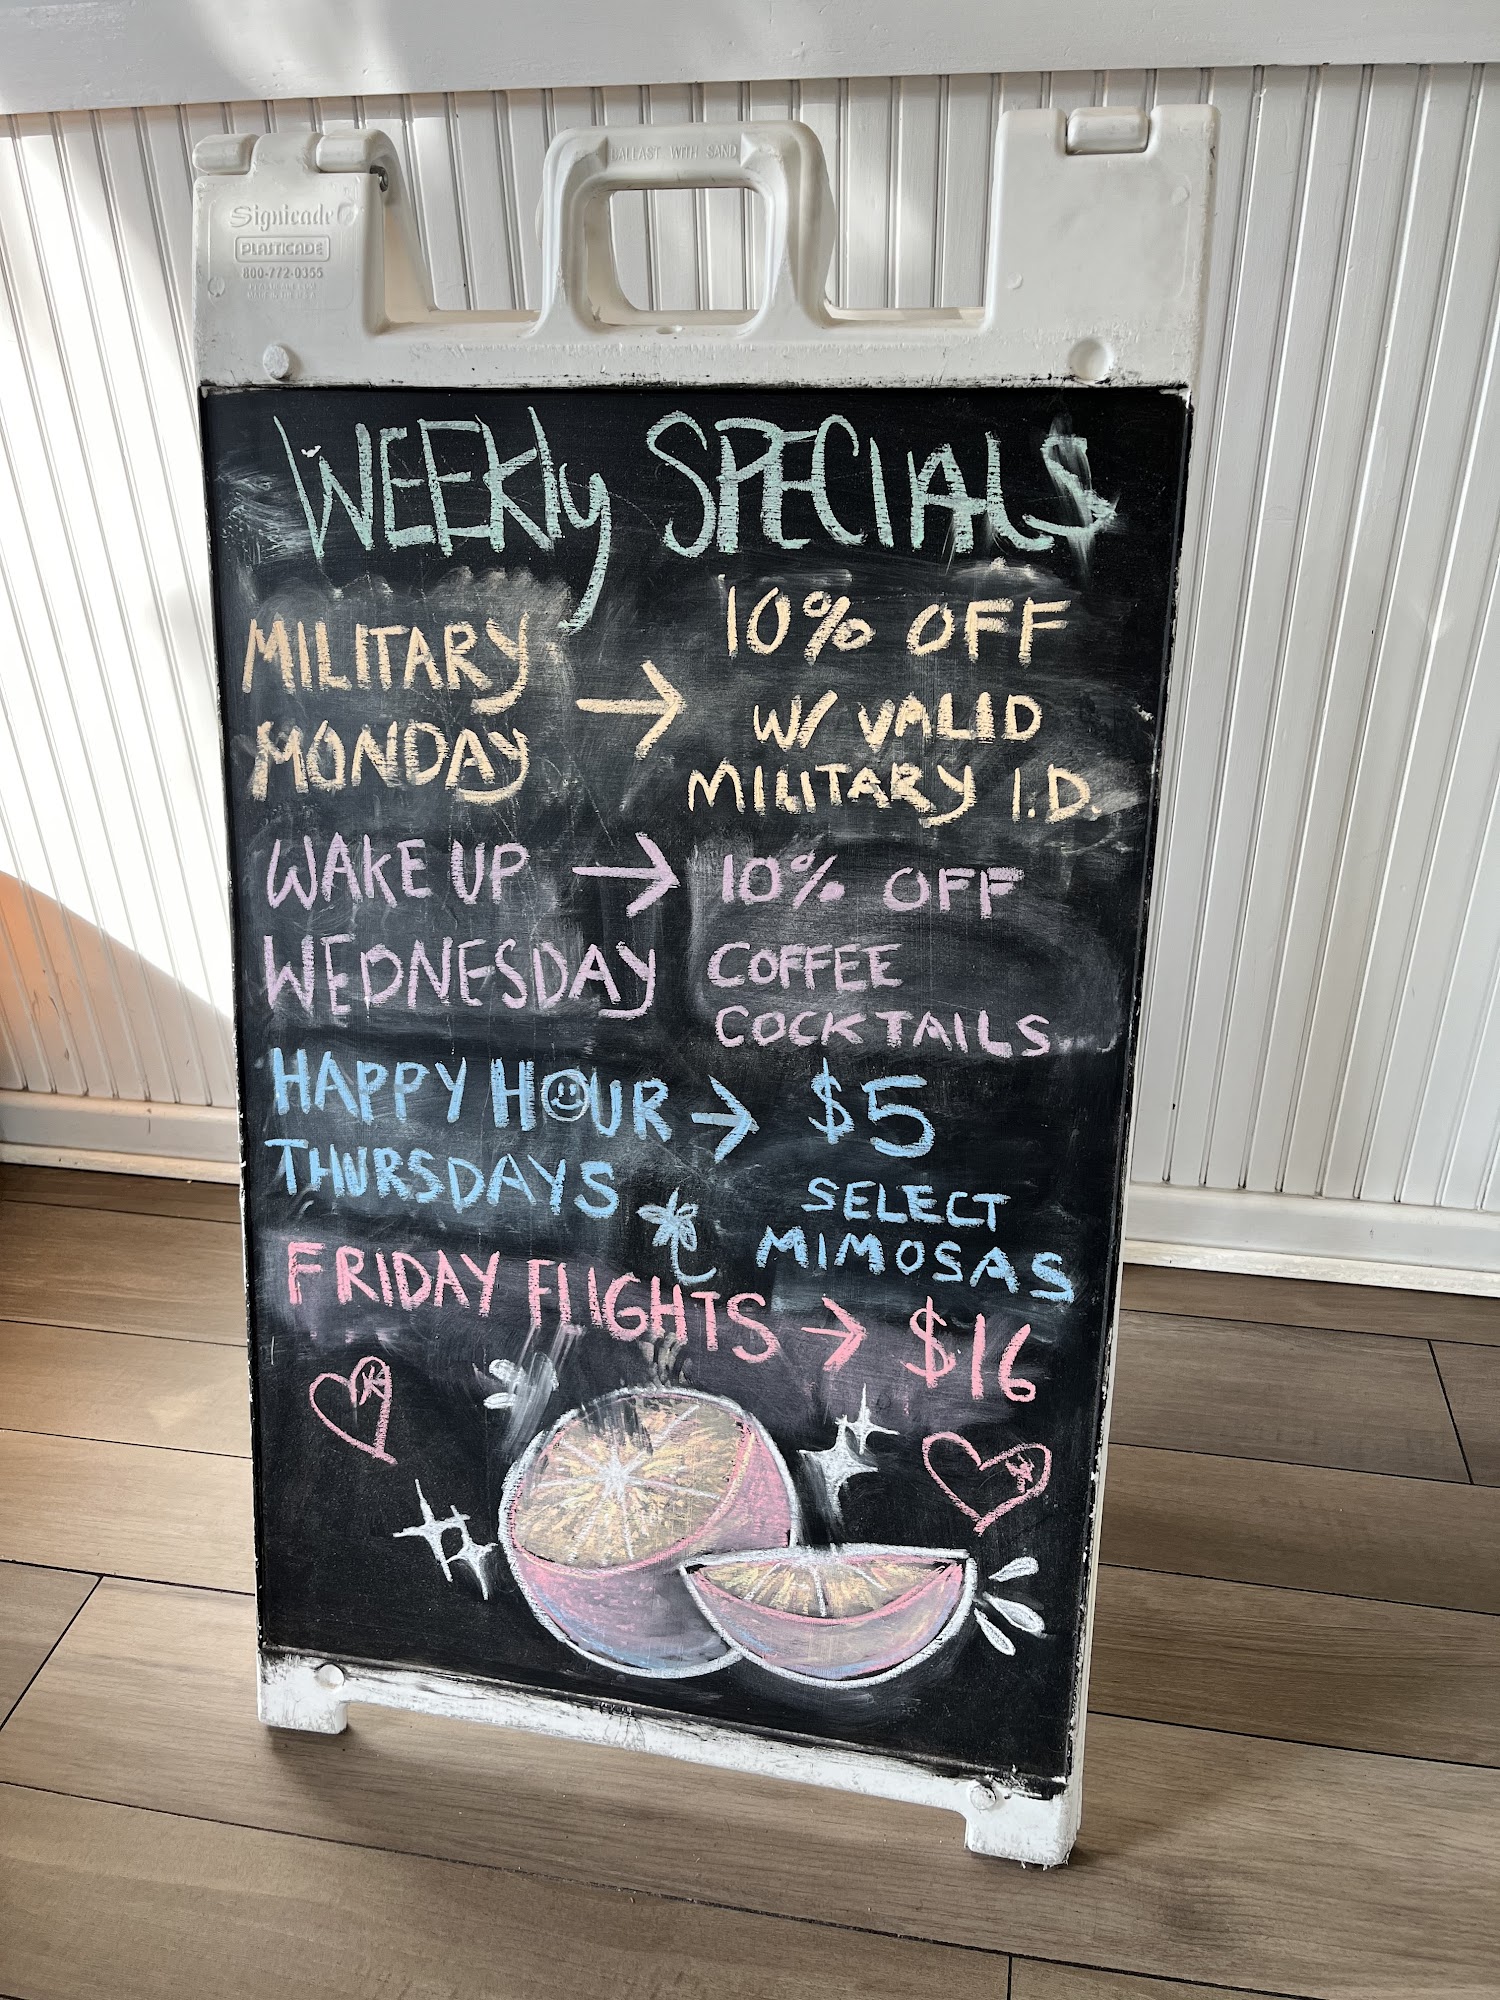 BALLAST WITH SAND
Signicade
PLASTICADE
800-772-0355
WEEKly SPECIALS
MILITARY
MONDAY
→ 10% OFF
W/ VALID
MILITARY I.D.
WAKE UP
WEDNESDAY
→ 10% OFF
COFFEE
COCKTAILS
HAPPY HOUR
THURSDAYS
→ $5
SELECT
MIMOSAS
FRIDAY FLIGHTS → $16